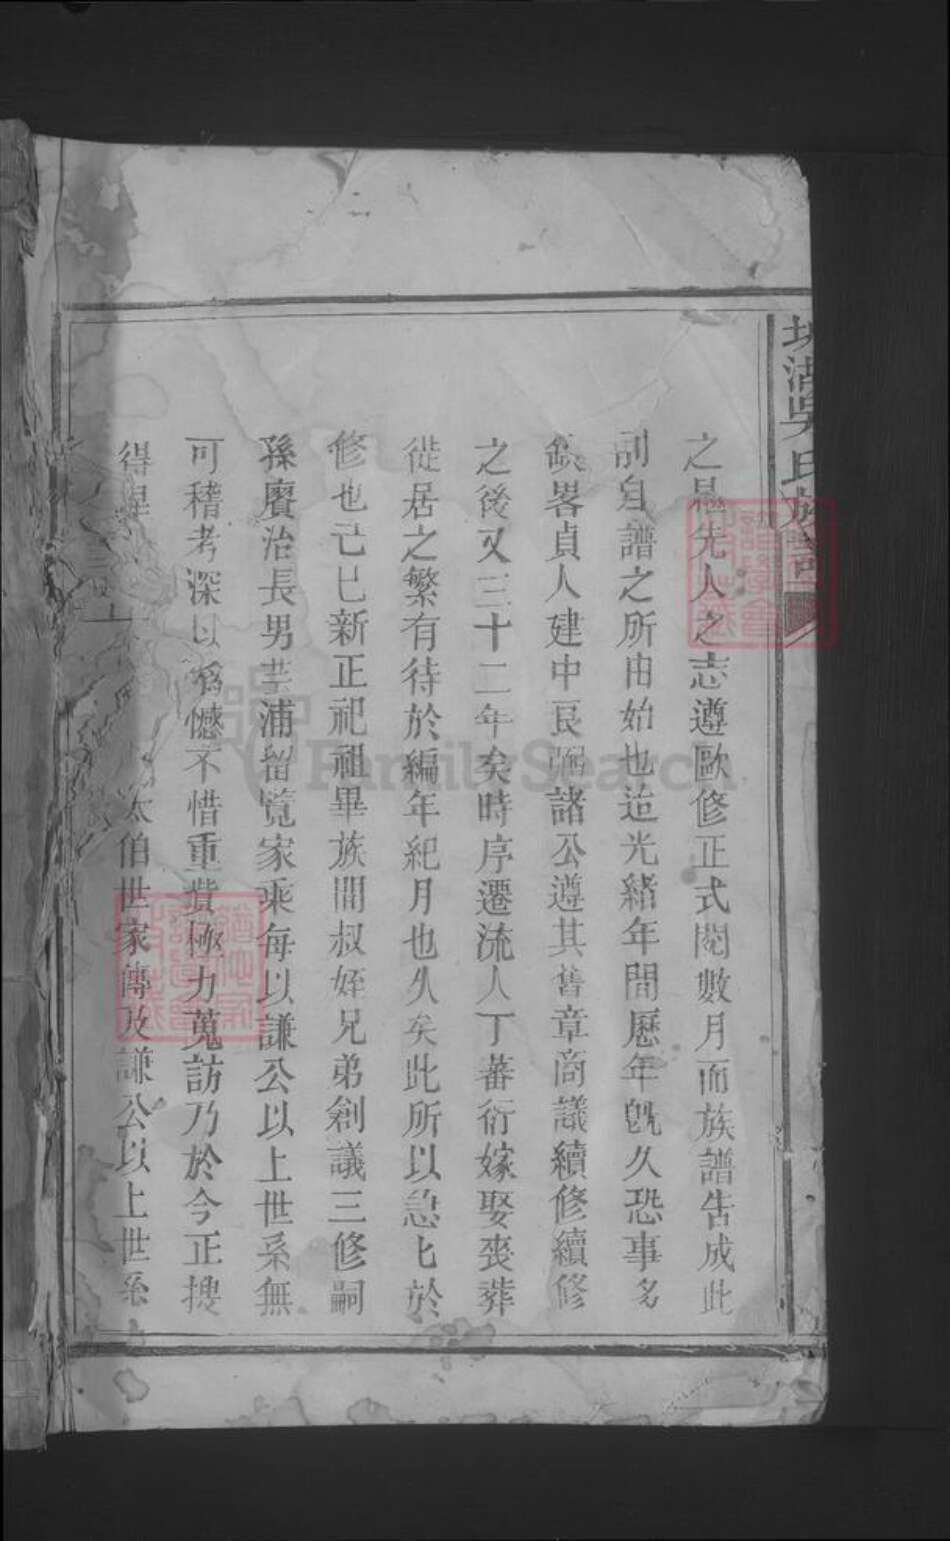 之愚先人之志遵歐修正式閱數月而族譜告成此
創自譜之所由始也迨光緒年間歷年旣久恐事多
缺畧貞人建中良弼諸公遵其舊章商議續修續修
之後又三十二年矣時序遷流人丁蕃衍嫁娶喪葬
徙居之繁有待於編年紀月也久矣此所以急七於
修也己巳新正祀祖畢族間叔姪兄弟創議三修嗣
孫賡治長男芋浦留覽家乘每以謙公以上世系無
可稽考深以爲憾不惜重費極力蒐訪乃於今正搜
得 上 泰伯世家傳及謙公以上世系
吳氏族譜
FamilySearch